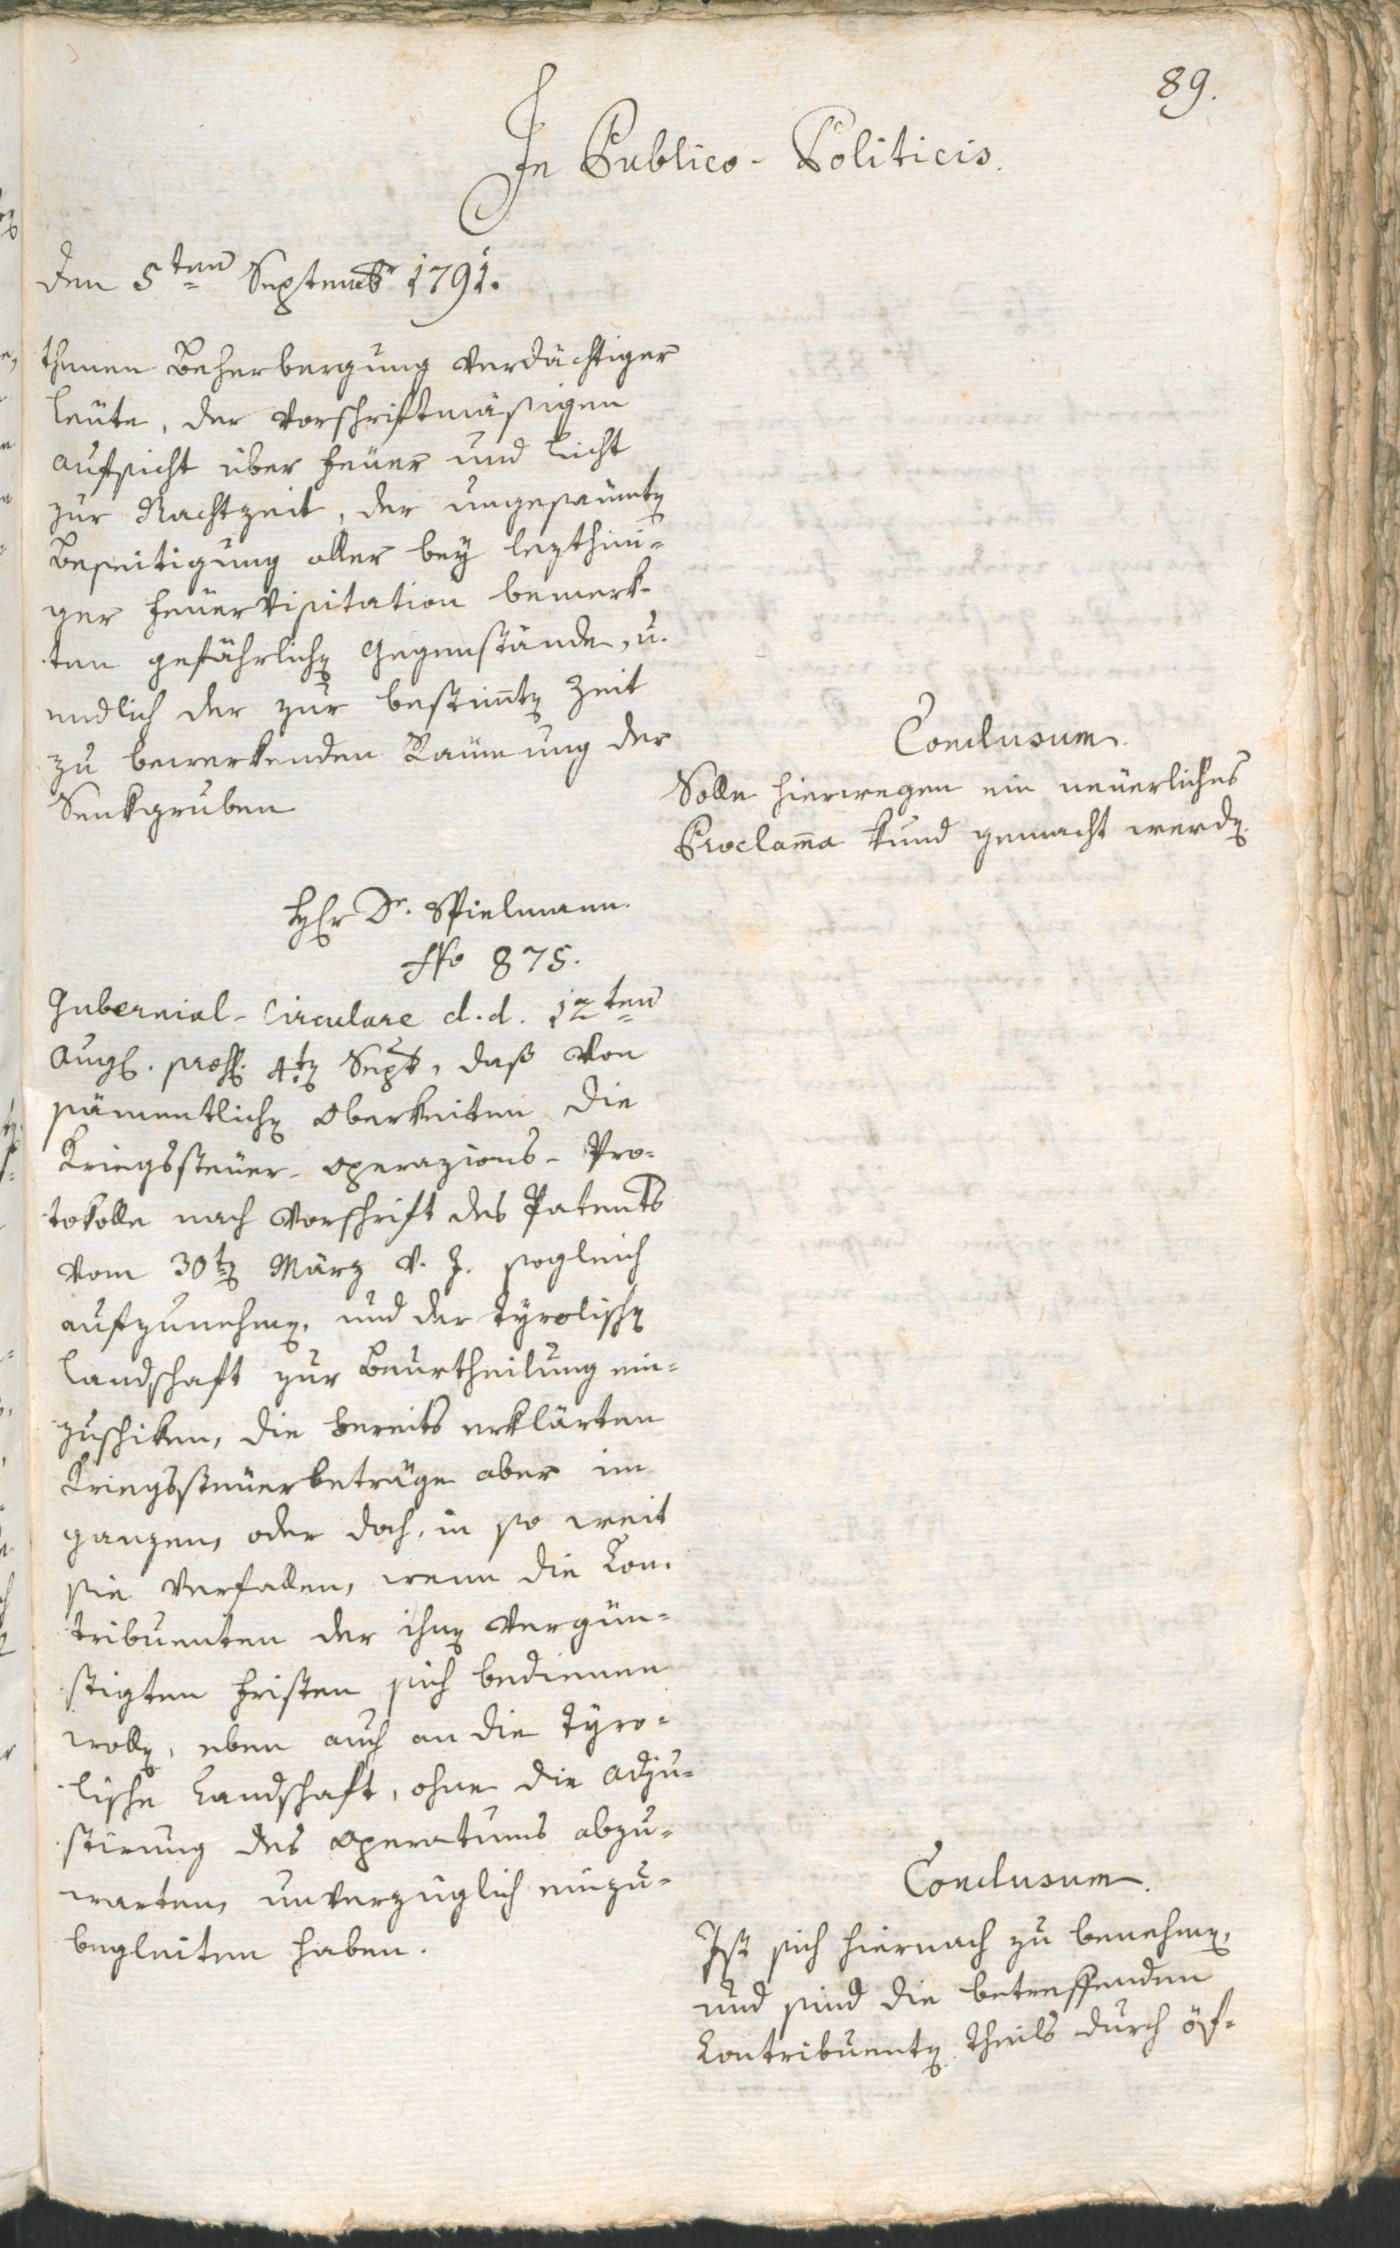 89.
In Publico-Politicis.
den 5ten Septembr 1791.
thenen Beherbergung verdächtiger
Leüte, der vorschriftmäßigen
aufsicht über Feüer und Licht
zur Nachtzeit, der ungesaumten
Beseitigung aller bey lezthini-
ger Feüervisitation bemerk-
ten gefährlichen Gegenstände, u.
endlich der zur bestimten Zeit
zu bewerkenden Raümung der
Senkgruben
Conclusum.
Solle hierwegen ein neüerliches
Proclama kund gemacht werden.
Herr Dr. Spielmann.
No 875.
Gubernial-Circulare d. d. 12ten
Aug. praes. 4ten Sept, daß von
sämentlichen oberkeiten die
Kriegssteüer-operazions-Pro-
tokolle nach Vorschrift des Patents
vom 30ten März v. J. sogleich
aufzunehmen, und der tyrolischen
Landschaft zur Beurtheilung ein-
zuschiken, die bereits erklärten
Kriegssteüerbeträge aber im
ganzen, oder doch, in so weit
sie verfallen, wenn die Con-
tribuenten der ihnen vergün-
stigten Fristen sich bedienen
wollen, eben auch an die Tyro-
lische Landschaft, ohne die adju-
stirung des operatums abzu-
warten, unverzüglich einzu-
begleiten haben.
Conclusum.
Ist sich hiernach zu benehmen,
und sind die betreffenden
Contribuenten theils durch öf-